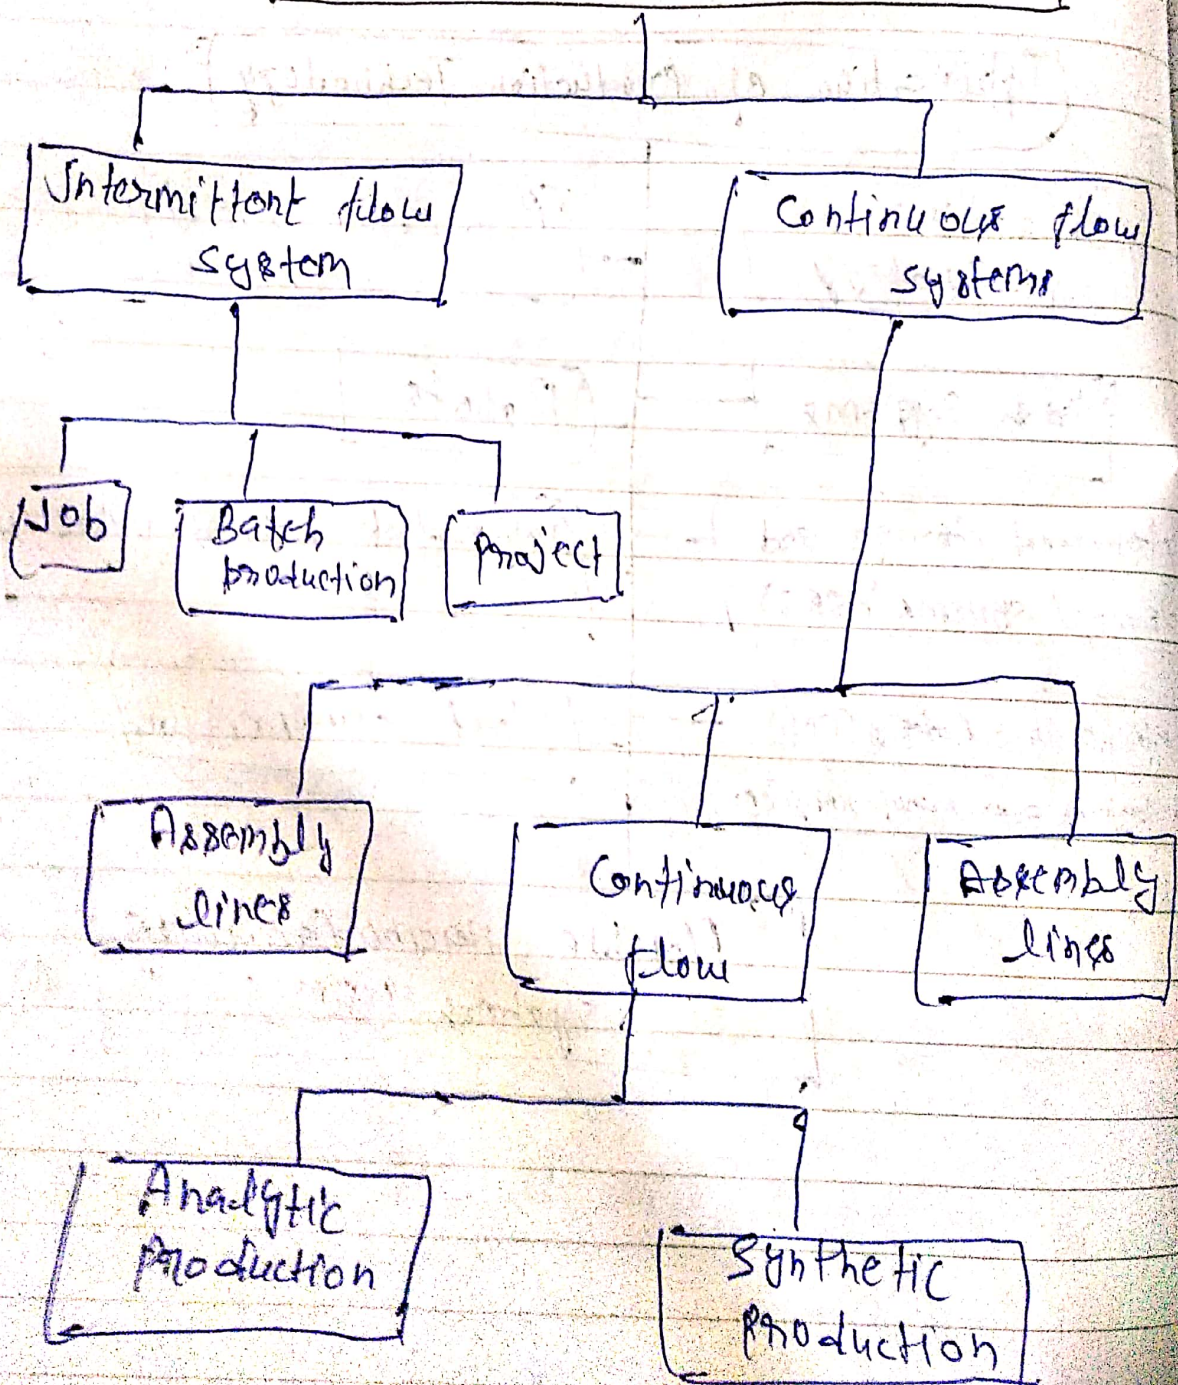 Intermittent flow
system
Continuous flow
systems
Job
Batch
production
Project
Assembly
lines
Continuous
flow
Assembly
lines
Analytic
Production
Synthetic
Production